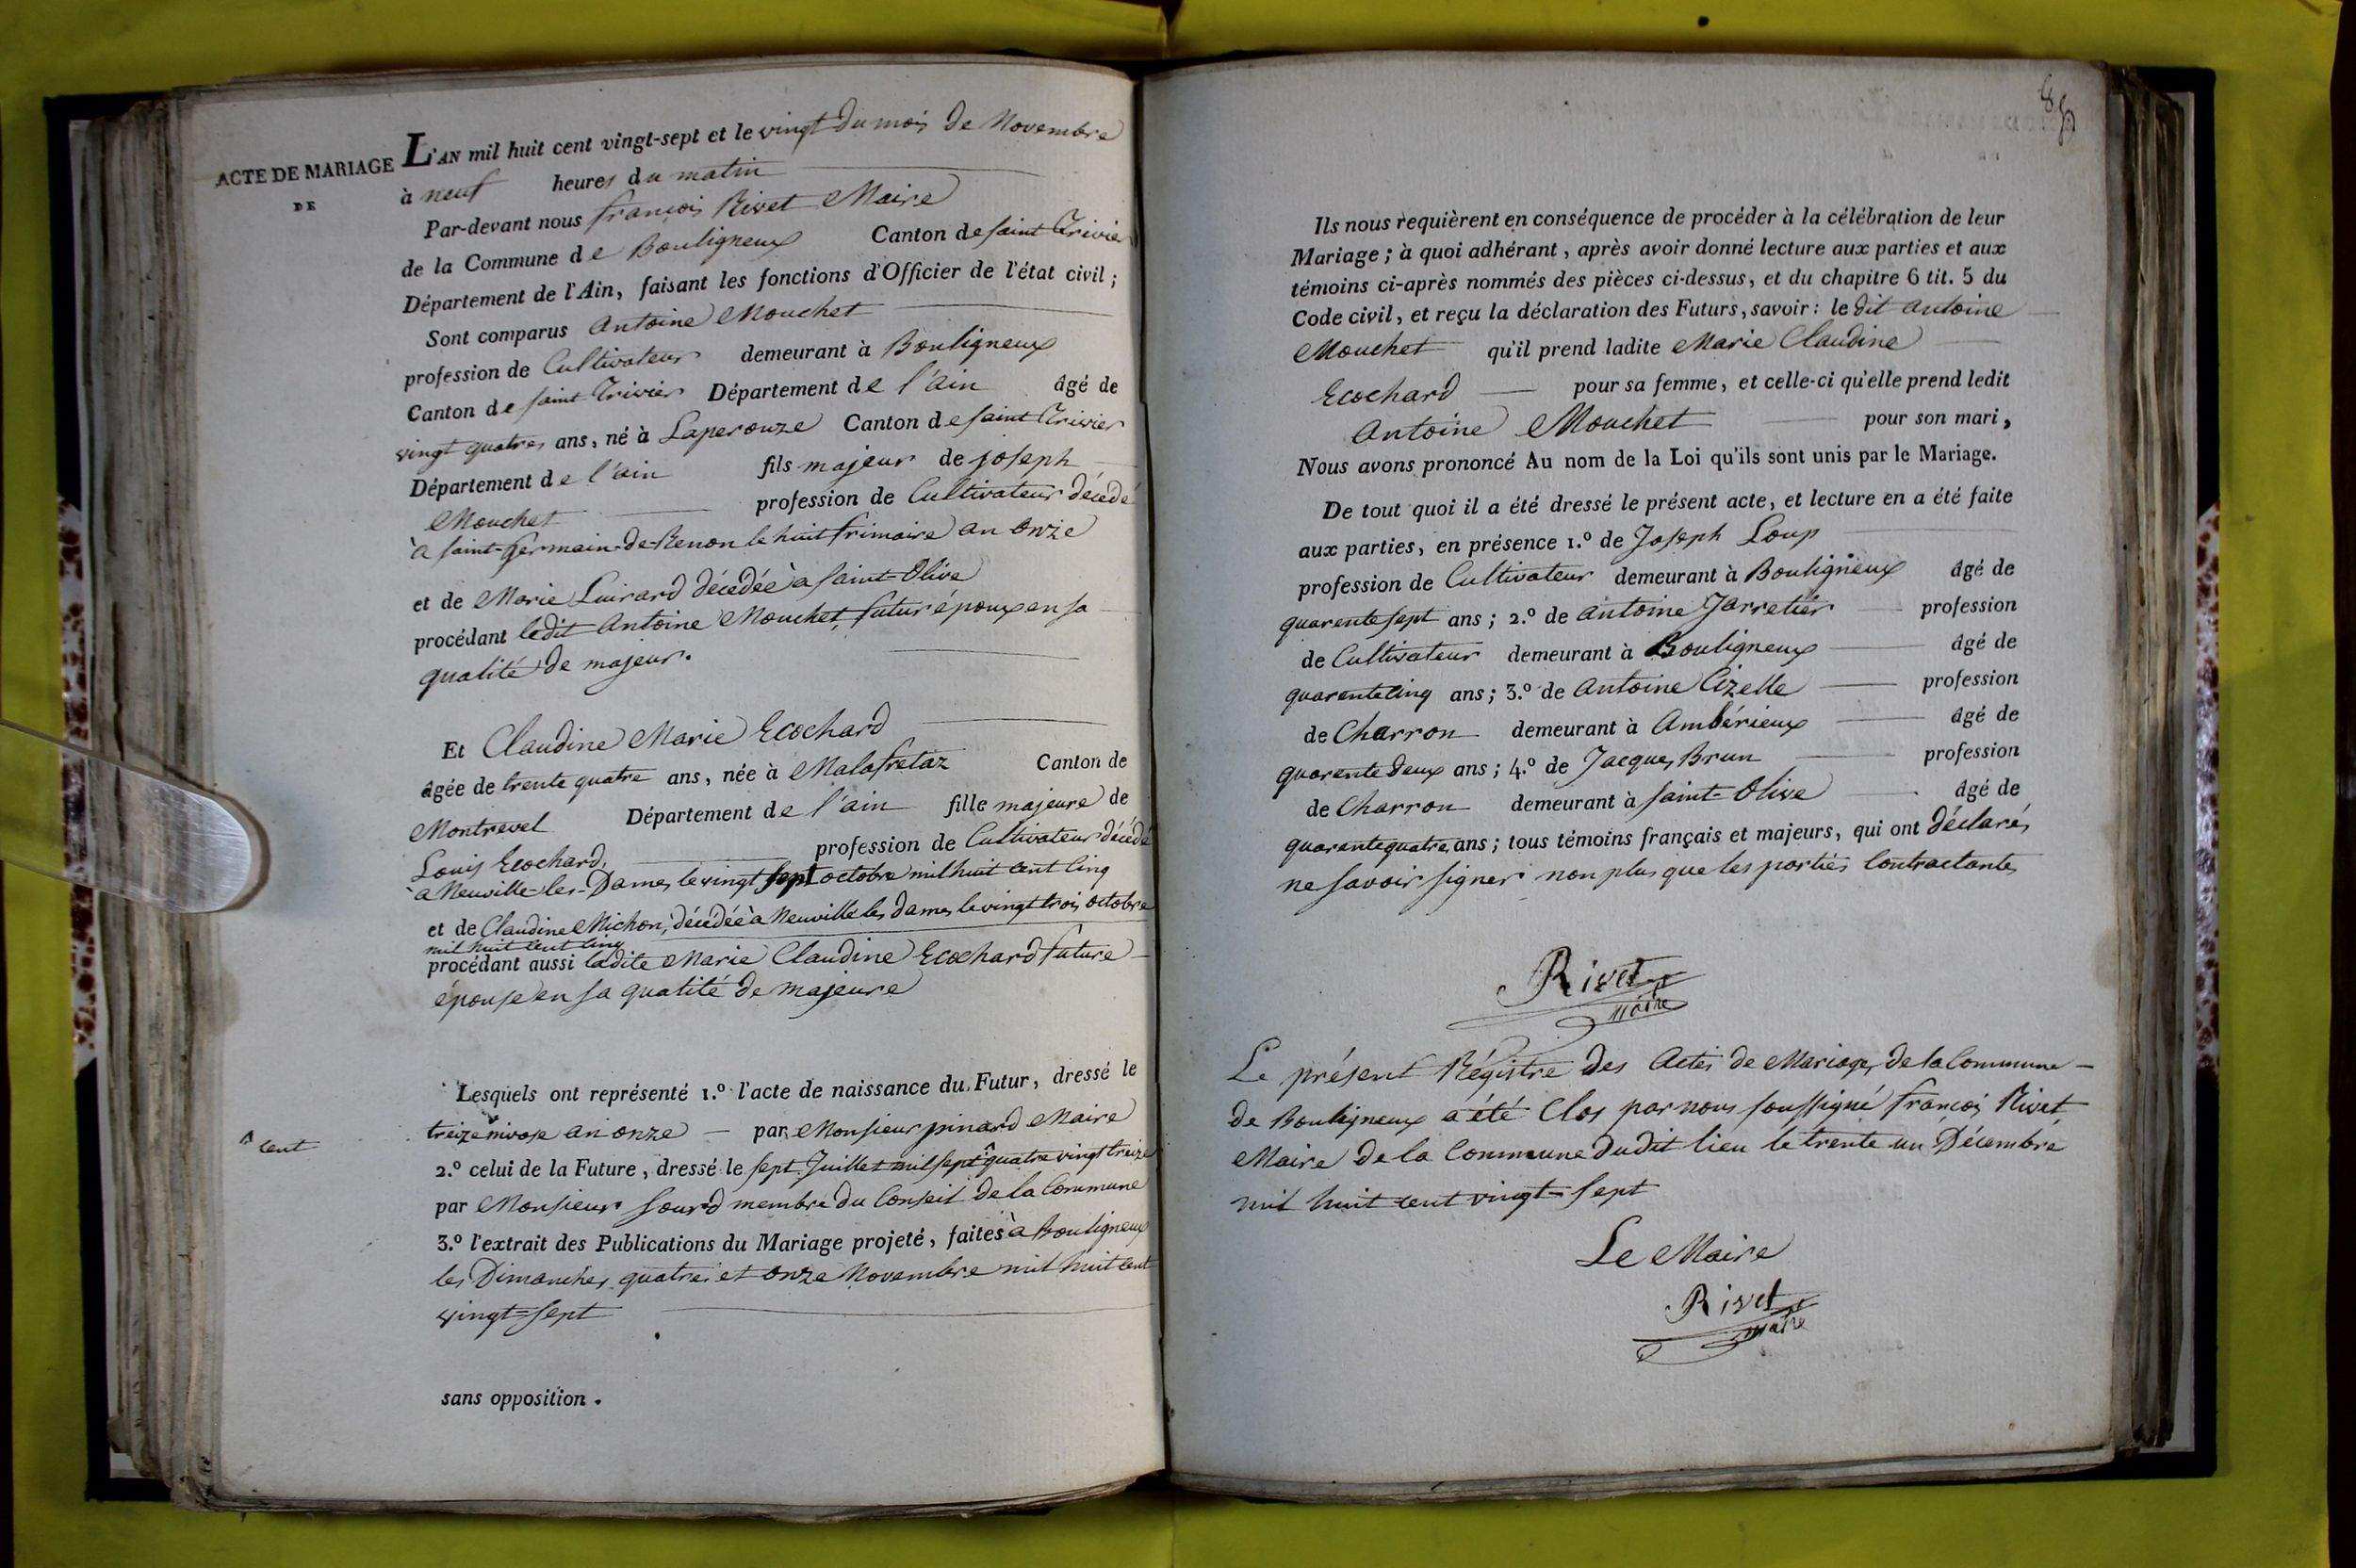 ACTE DE MARIAGE
DE
L'AN mil huit cent vingt-sept et le vingt du mois de Novembre
à neuf heures du matin
Par-devant nous françois Rivet Maire
de la Commune de Bouligneux Canton de saint Trivier
Département de l'Ain, faisant les fonctions d'Officier de l'état civil ;
Sont comparus Antoine Mouchet
profession de Cultivateur demeurant à Bouligneux
Canton de saint Trivier Département de l'ain âgé de
vingt quatre ans, né à Laperouze Canton de saint Trivier
Département de l'ain fils majeur de joseph
Mouchet profession de Cultivateur décédé
à saint-Germain-de-Renon le huit frimaire an onze
et de Marie Luirard décédée à saint-Olive
procédant ledit Antoine Mouchet, futur époux en sa
qualité de majeur.
Et Claudine Marie Ecochard
âgée de trente quatre ans, née à Malafretaz Canton de
Montrevel Département de l'ain fille majeure de
Louis Ecochard, profession de Cultivateur décédé
à Neuville-les-Dames le vingt sept octobre mil huit cent cinq
et de Claudine Michon, décédée à Neuville les dames le vingt trois octobre
mil huit cent cinq
procédant aussi ladite Marie Claudine Ecochard future
épouse en sa qualité de majeure
Lesquels ont représenté 1.º l'acte de naissance du Futur, dressé le
treize nivose an onze — par Monsieur pinard Maire
^ cent
2.º celui de la Future, dressé le sept Juillet mil sept ^ quatre vingt treize
par Monsieur Sourd membre du Conseil de la Commune
3.º l'extrait des Publications du Mariage projeté, faites à Bouligneux
les Dimanches quatre et onze Novembre mil huit cent
vingt=sept
sans opposition.
Ils nous requièrent en conséquence de procéder à la célébration de leur
Mariage ; à quoi adhérant, après avoir donné lecture aux parties et aux
témoins ci-après nommés des pièces ci-dessus, et du chapitre 6 tit. 5 du
Code civil, et reçu la déclaration des Futurs, savoir : le dit antoine
Mouchet qu'il prend ladite Marie Claudine
Ecochard — pour sa femme, et celle-ci qu'elle prend ledit
Antoine Mouchet — pour son mari,
Nous avons prononcé Au nom de la Loi qu'ils sont unis par le Mariage.
De tout quoi il a été dressé le présent acte, et lecture en a été faite
aux parties, en présence 1.º de Joseph Loup
profession de Cultivateur demeurant à Bouligneux âgé de
quarente sept ans ; 2.º de antoine Jarretier — profession
de Cultivateur demeurant à Bouligneux — âgé de
quarente cinq ans ; 3.º de antoine Cizelle — profession
de Charron demeurant à Ambérieux — âgé de
quarente deux ans ; 4.º de Jacques Brun — profession
de Charron demeurant à saint-Olive — âgé de
quarente quatre ans ; tous témoins français et majeurs, qui ont déclarés
ne savoir signer non plus que les parties Contractantes
Rivet
maire
Le présent Régistre des Actes de Mariages de la Commune —
de Bouligneux a été Clos par nous soussigné françois Rivet
Maire de la Commune dudit lieu le trente un Décembre
mil huit cent vingt=sept
Le Maire
Rivet
maire